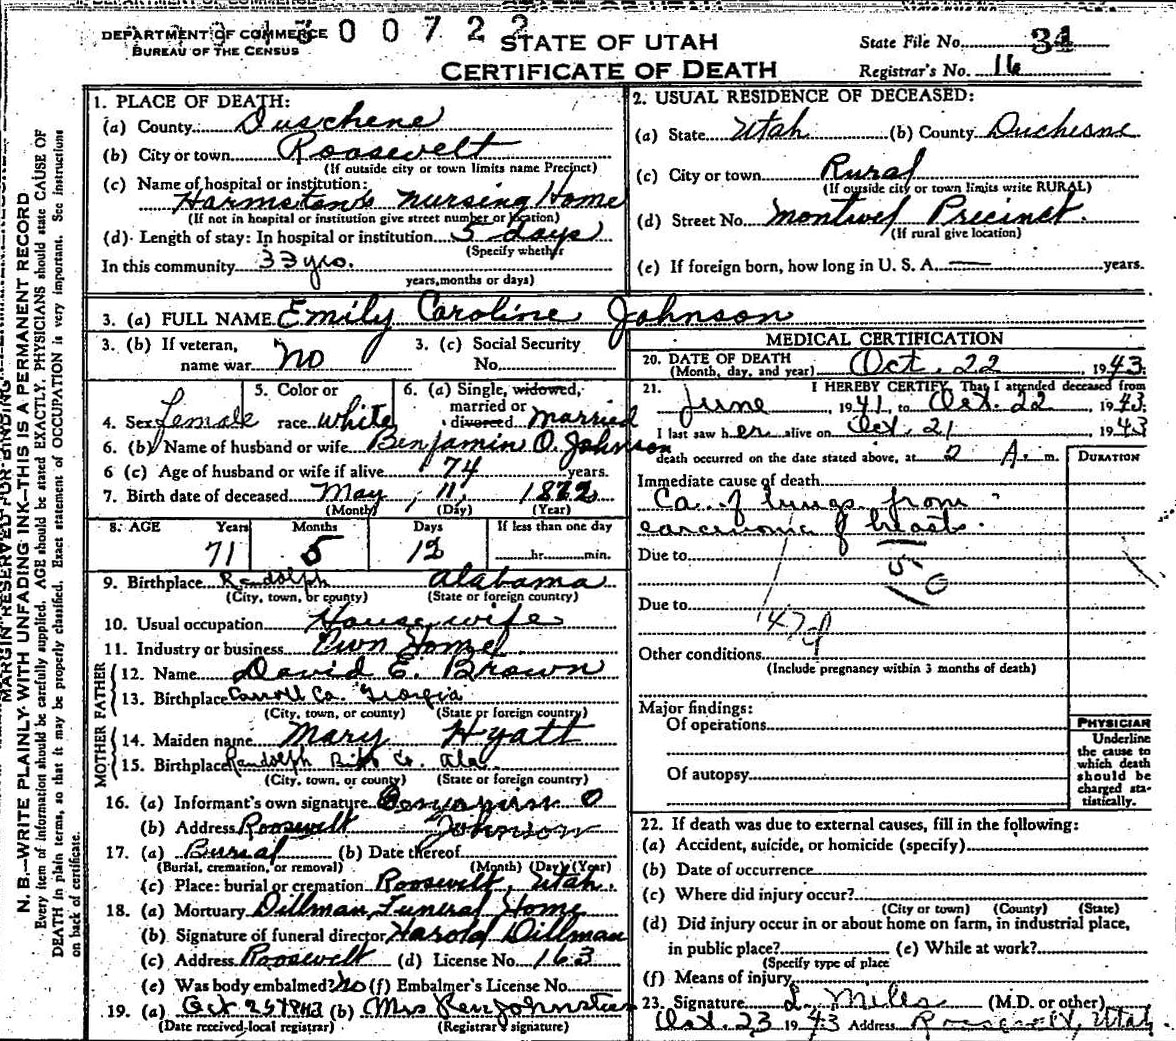 DEPARTMENT OF COMMERCE
BUREAU OF THE CENSUS
500722
STATE OF UTAH
CERTIFICATE OF DEATH
State File No. 34
Registrar's No. 16
MARGIN RESERVED FOR BINDING
N. B.—WRITE PLAINLY WITH UNFADING INK—THIS IS A PERMANENT RECORD
Every item of information should be carefully supplied. AGE should be stated EXACTLY. PHYSICIANS should state CAUSE OF
DEATH in plain terms, so that it may be properly classified. Exact statement of OCCUPATION is very important. See instructions
on back of certificate.
1. PLACE OF DEATH:
(a) County Duschene
(b) City or town Roosevelt
(If outside city or town limits name Precinct)
(c) Name of hospital or institution:
Harmston's Nursing Home
(If not in hospital or institution give street number or location)
(d) Length of stay: In hospital or institution 5 days
(Specify whether
In this community 33 yrs.
years, months or days)
2. USUAL RESIDENCE OF DECEASED:
(a) State Utah (b) County Duchesne
(c) City or town Rural
(If outside city or town limits write RURAL)
(d) Street No. Montwel Precinct.
(If rural give location)
(e) If foreign born, how long in U. S. A. — years.
3. (a) FULL NAME Emily Caroline Johnson
3. (b) If veteran,
name war no
3. (c) Social Security
No.
4. Sex female
5. Color or
race white
6. (a) Single, widowed,
married or
divorced married
6. (b) Name of husband or wife Benjamin O. Johnson
6 (c) Age of husband or wife if alive 74 years.
7. Birth date of deceased May 11, 1872
(Month) (Day) (Year)
8. AGE Years Months Days If less than one day
71 5 12 hr. min.
9. Birthplace Randolph Alabama
(City, town, or county) (State or foreign country)
10. Usual occupation Housewife
11. Industry or business Own Home
FATHER
12. Name David E. Brown
13. Birthplace Carroll Co. Georgia
(City, town, or county) (State or foreign country)
MOTHER
14. Maiden name Mary Hyatt
15. Birthplace Randolph Co. Ala
(City, town, or county) (State or foreign country)
16. (a) Informant's own signature Benjamin O
(b) Address Roosevelt Johnson
17. (a) Burial (b) Date thereof
(Burial, cremation, or removal) (Month) (Day) (Year)
(c) Place: burial or cremation Roosevelt, Utah.
18. (a) Mortuary Dillman Funeral Home
(b) Signature of funeral director Harold Dillman
(c) Address Roosevelt (d) License No. 163
(e) Was body embalmed? No (f) Embalmer's License No.
19. (a) Oct 25 1943 (b) Mrs Ren Johnston
(Date received local registrar) (Registrar's signature)
MEDICAL CERTIFICATION
20. DATE OF DEATH
(Month, day, and year) Oct. 22, 1943.
21. I HEREBY CERTIFY, That I attended deceased from
June, 1941, to Oct. 22 1943
I last saw her alive on Oct. 21 1943
death occurred on the date stated above, at 2 A. m.
DURATION
Immediate cause of death
Ca. of lungs from
carcinoma of breasts.
Due to
50
Due to
47
Other conditions
(Include pregnancy within 3 months of death)
Major findings:
Of operations
Of autopsy
PHYSICIAN
Underline
the cause to
which death
should be
charged sta-
tistically.
22. If death was due to external causes, fill in the following:
(a) Accident, suicide, or homicide (specify)
(b) Date of occurrence
(c) Where did injury occur?
(City or town) (County) (State)
(d) Did injury occur in or about home on farm, in industrial place,
in public place? (e) While at work?
(Specify type of place
(f) Means of injury
23. Signature L. Miles (M.D. or other)
Oct. 23 1943 Address Roosevelt, Utah.